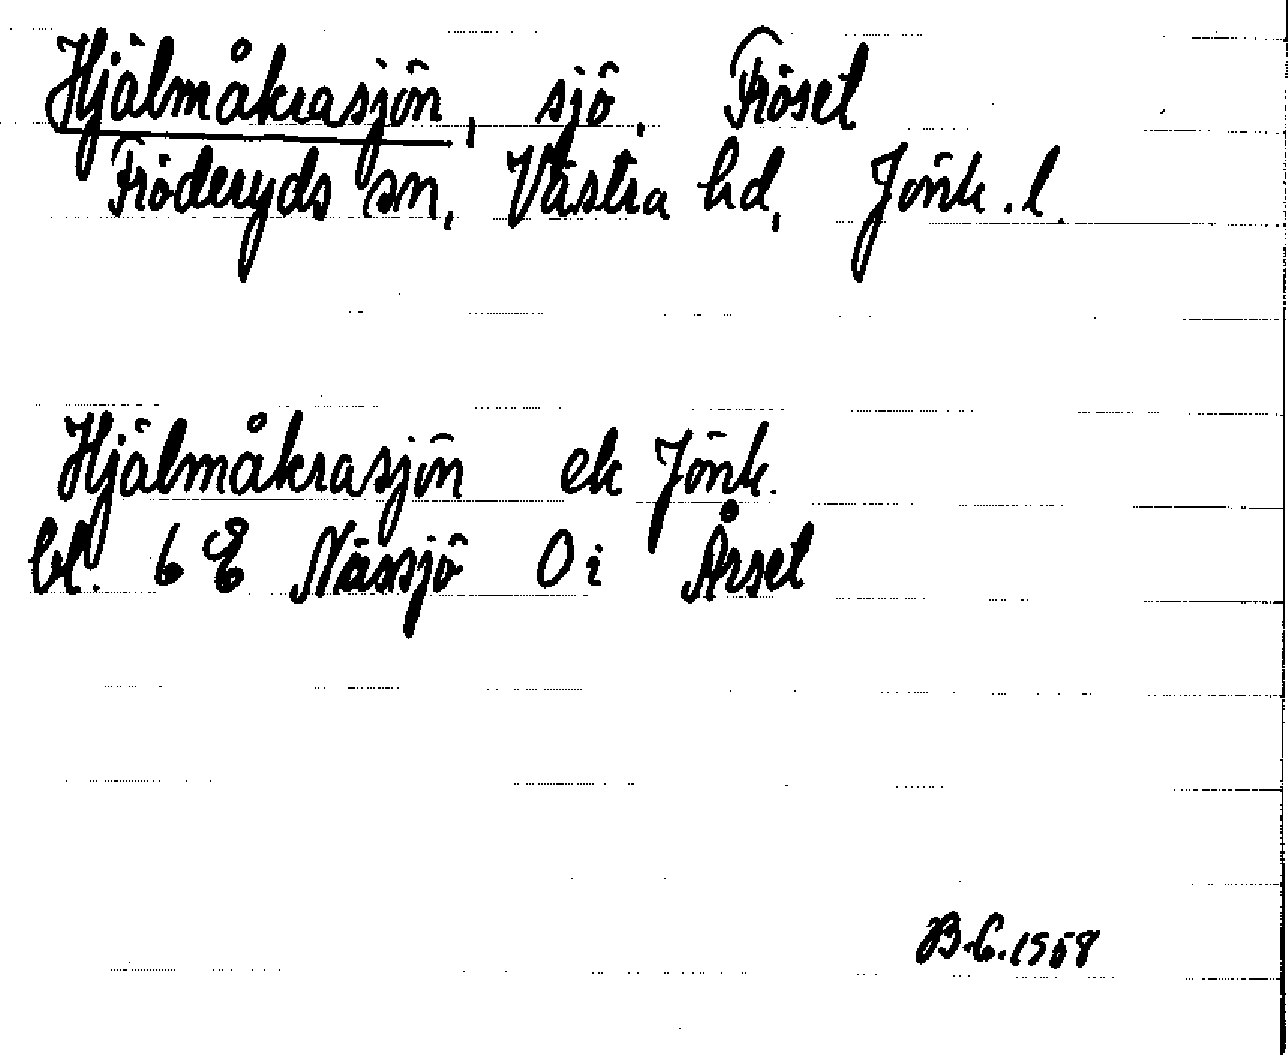 Hjälmåkrasjön, sjö, Fröset
Fröderyds sn, Västra hd, Jönk.l.
Hjälmåkrasjön ek Jönk.
bl. 6 E Nässjö 0i Årset
B.C.1958